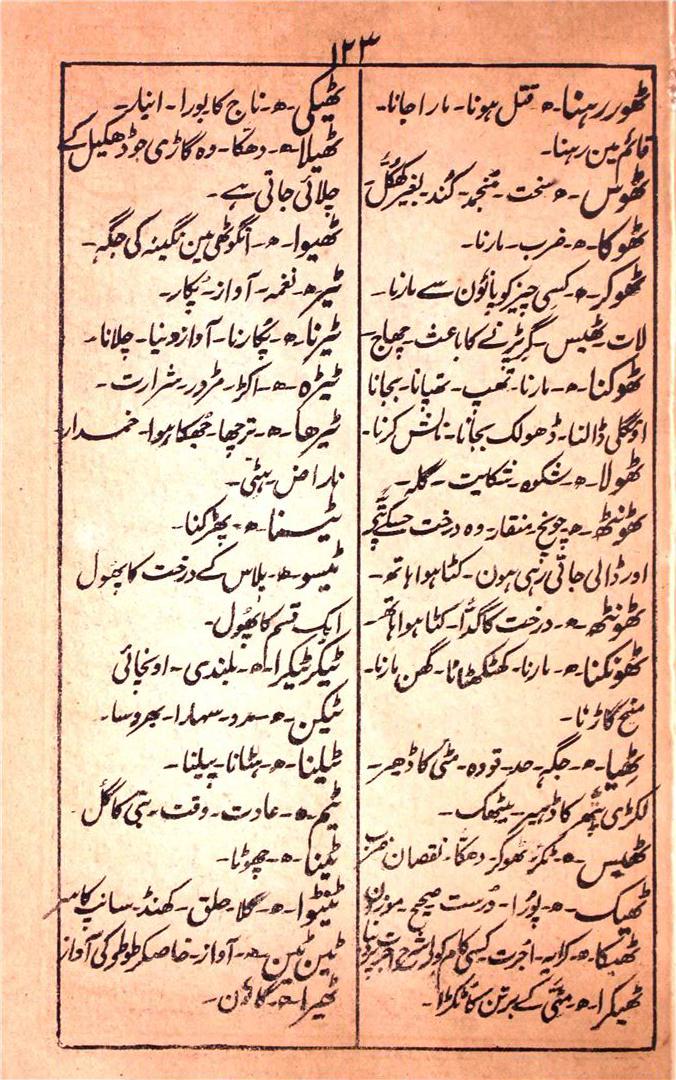 ۱۲۳
ٹھور رہنا۔ھ۔ قتل ہونا۔ مارا جانا۔
قائم مین رہنا۔
ٹھوس۔ھ سخت۔ منجمد۔ کُند۔ بغیر کھُکّل
ٹھوکا۔ھ۔ ضرب۔ مارنا۔
ٹھوکر۔ھ۔ کسی چیز کو پائون سے مارنا۔
لات۔ ٹھیس۔ گرپڑنے کا باعث۔ چھاج۔
ٹھوکنا۔ھ۔ مارنا۔ تھپ۔ تھپانا۔ بجانا
اونگلی ڈالنا۔ ڈھولک بجانا۔ نالش کرنا۔
ٹھولا۔ھ۔ شکوہ۔ شکایت۔ گلہ۔
ٹھونٹھ۔ھ۔ چونچ۔ منقار۔ وہ درخت جسکے پتّے
اور ڈالی جاتی رہی ہون۔ کٹا ہوا ہاتھ۔
ٹھونٹھ۔ھ۔ درخت کا گُدّا۔ کٹا ہوا ہاتھ۔
ٹھونکنا۔ھ۔ مارنا۔ کھٹکھٹانا۔ گھن مارنا۔
میخ گاڑنا۔
ٹھیا۔ھ۔ جگہ۔ حد۔ تودہ۔ مٹی کا ڈھیر۔
لکڑی پتّھر کا ڈہیر۔ بیٹھک۔
ٹھیس۔ھ۔ ٹکر۔ ٹھوکر۔ دھکّا۔ نقصان۔ ضرب
ٹھیک۔ھ۔ پورا۔ دُرست۔ صحیح۔ موزون
ٹھیکا۔ھ۔ کرایہ۔ اجرت۔ کسی کام کو
ٹھیکرا۔ھ۔ مٹّی کے برتن کا ٹکڑا۔
ٹھیکی۔ھ۔ ناج کا بورا۔ انبار۔
ٹھیلا۔ھ۔ دھکّا۔ وہ گاڑی جو ڈھکیل کے
چلائی جاتی ہے۔
ٹھیوا۔ھ۔ انگوٹھی مین نگینہ کی جگہ۔
ٹیر۔ھ۔ نغمہ۔ آواز۔ پُکار۔
ٹیرنا۔ھ۔ پُکارنا۔ آواز دینا۔ چلانا۔
ٹیڑہ۔ھ۔ اکڑ۔ مڑور۔ شرارت۔
ٹیڑھا۔ھ۔ ترچھا۔ جھکا ہوا۔ خمدار۔
ناراض۔ ہٹی۔
ٹیسنا۔ھ۔ پھڑکنا۔
ٹیسو۔ھ۔ پلاس کے درخت کا پھول
ایک قسم کا پھُول۔
ٹیکر ٹیکرا۔ھ۔ بلندی۔ اونچائی
ٹیکن۔ھ۔ مدد۔ سہارا۔ بھروسا۔
ٹیلنا۔ھ۔ ہٹانا۔ پیلنا۔
ٹیم۔ھ۔ عادت۔ وقت۔ بتی کا گُل
ٹینا۔ھ۔ چھوٹا۔
ٹینٹوا۔ھ۔ گلا۔ حلق۔ کھنڈ۔ سانپ کا سر
ٹین ٹین۔ھ۔ آواز۔ خاصکر طوطو کی آواز
ٹھیرا۔ھ۔ گائون۔